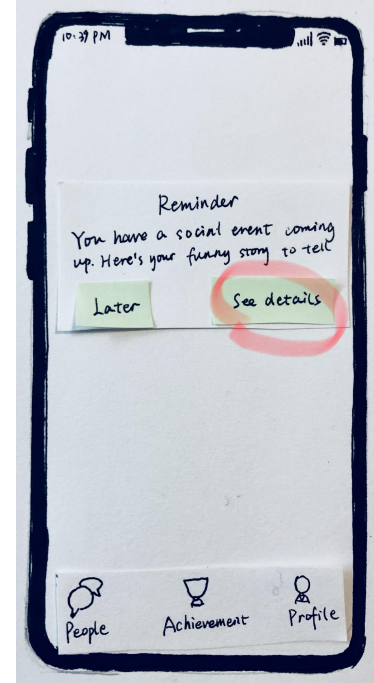 10:39 PM
Reminder
You have a social event coming
up. Here's your funny story to tell
Later
See details
People
Achievement
Profile